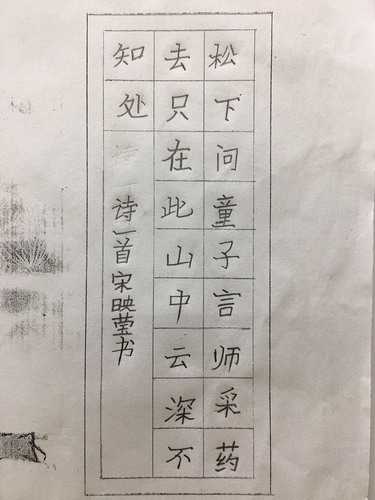 松下问童子言师采药
去只在此山中云深不
知处
诗一首宋映莹书